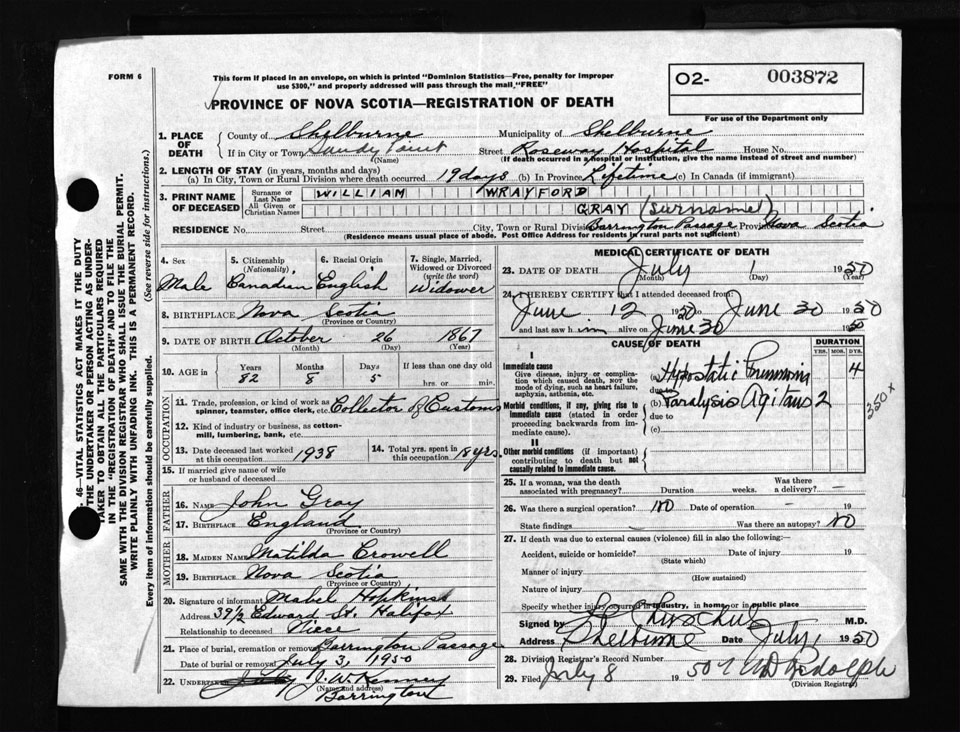 FORM 6
This form if placed in an envelope, on which is printed "Dominion Statistics—Free, penalty for improper
use $300," and properly addressed will pass through the mail, "FREE"
PROVINCE OF NOVA SCOTIA—REGISTRATION OF DEATH
O2- 003872
For use of the Department only
1. PLACE OF DEATH
County of Shelburne Municipality of Shelburne
If in City or Town Sandy Point Street Roseway Hospital House No.
(Name) (If death occurred in a hospital or institution, give the name instead of street and number)
2. LENGTH OF STAY (in years, months and days)
(a) In City, Town or Rural Division where death occurred 19 days (b) In Province Lifetime (c) In Canada (if immigrant)
3. PRINT NAME OF DECEASED
Surname or Last Name WILLIAM WRAYFORD
All Given or Christian Names GRAY (surname)
RESIDENCE No. Street City, Town or Rural Division Barrington Passage Province Nova Scotia
(Residence means usual place of abode. Post Office Address for residents in rural parts not sufficient)
4. Sex
Male
5. Citizenship (Nationality)
Canadian
6. Racial Origin
English
7. Single, Married, Widowed or Divorced (write the word)
Widower
8. BIRTHPLACE Nova Scotia
(Province or Country)
9. DATE OF BIRTH October 26 1867
(Month) (Day) (Year)
10. AGE in Years Months Days If less than one day old
82 8 5 hrs. or min.
OCCUPATION
11. Trade, profession, or kind of work as
spinner, teamster, office clerk, etc. Collector of Customs
12. Kind of industry or business, as cotton-
mill, lumbering, bank, etc.
13. Date deceased last worked at this occupation 1938
14. Total yrs. spent in this occupation 18 yrs.
15. If married give name of wife
or husband of deceased
FATHER
16. NAME John Gray
17. BIRTHPLACE England
(Province or Country)
MOTHER
18. MAIDEN NAME Matilda Crowell
19. BIRTHPLACE Nova Scotia
(Province or Country)
20. Signature of informant Mabel Hopkins
Address 39½ Edward St. Halifax
Relationship to deceased Niece
21. Place of burial, cremation or removal Barrington Passage
Date of burial or removal July 3, 1950
22. UNDERTAKER J. W. Kenney
(Name and address)
Barrington
MEDICAL CERTIFICATE OF DEATH
23. DATE OF DEATH July 1 1950
(Month) (Day) (Year)
24. I HEREBY CERTIFY that I attended deceased from
June 12 1950 to June 30 1950
and last saw him alive on June 30 1950
CAUSE OF DEATH DURATION
YRS. MOS. DYS.
I
Immediate cause
Give disease, injury or complication which caused death, NOT the mode of dying, such as heart failure, asphyxia, asthenia, etc.
(a) Hypostatic Pneumonia 4
due to
Morbid conditions, if any, giving rise to immediate cause (stated in order proceeding backwards from immediate cause).
(b) Paralysis Agitans 2
due to
(c)
350 x
II
Other morbid conditions (if important) contributing to death but not causally related to immediate cause.
25. If a woman, was the death
associated with pregnancy? Duration weeks. Was there a delivery? —
26. Was there a surgical operation? no Date of operation — 19
State findings — Was there an autopsy? no
27. If death was due to external causes (violence) fill in also the following:—
Accident, suicide or homicide? Date of injury 19
(State which)
Manner of injury
(How sustained)
Nature of injury
Specify whether injury occurred in industry, in home, or in public place
Signed by M.D.
Address Shelburne Date July 1 1950
28. Division Registrar's Record Number
29. Filed July 8 1950
(Division Registrar)
46—VITAL STATISTICS ACT MAKES IT THE DUTY
THE UNDERTAKER OR PERSON ACTING AS UNDER-
TAKER TO OBTAIN ALL THE PARTICULARS REQUIRED
IN THE "REGISTRATION OF DEATH" AND TO FILE THE
SAME WITH THE DIVISION REGISTRAR WHO SHALL ISSUE THE BURIAL PERMIT.
WRITE PLAINLY WITH UNFADING INK. THIS IS A PERMANENT RECORD.
Every item of information should be carefully supplied. (See reverse side for instructions.)